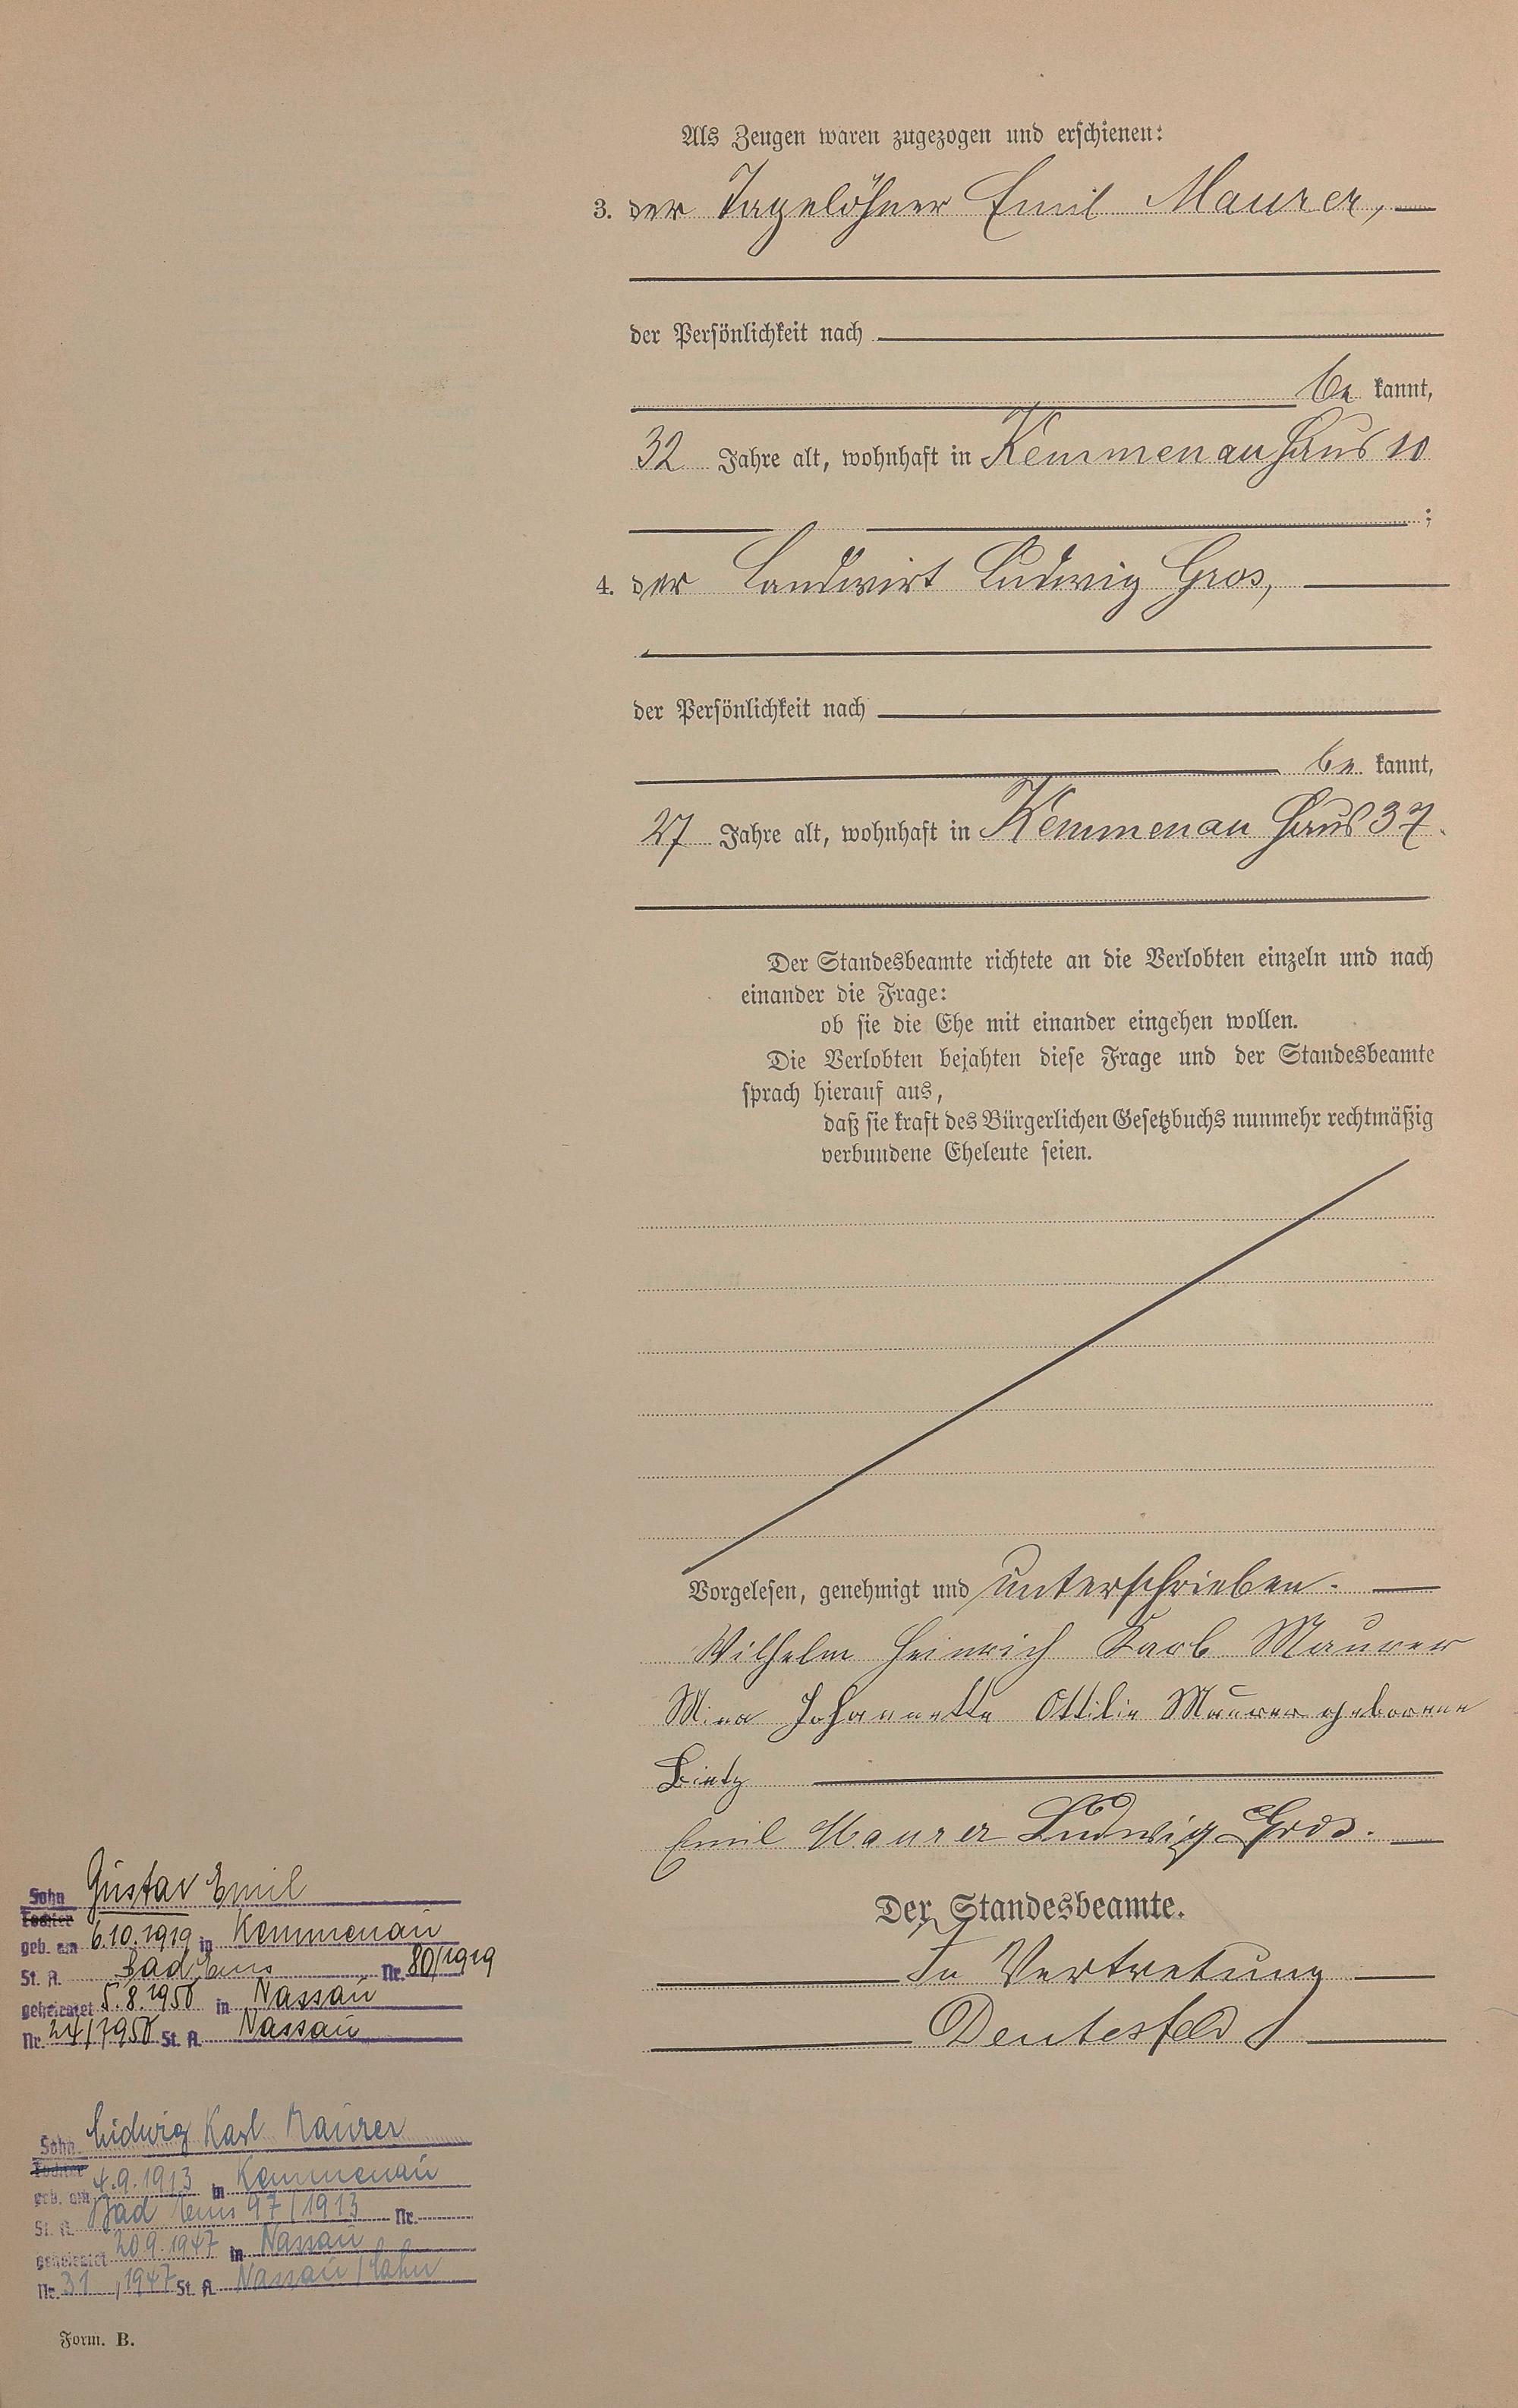 Als Zeugen waren zugezogen und erschienen:
3. der Tagelöhner Emil Maurer,
der Persönlichkeit nach
be kannt,
32 Jahre alt, wohnhaft in Kemmenau Haus 10
;
4. der Landwirt Ludwig Gros,
der Persönlichkeit nach
be kannt,
27 Jahre alt, wohnhaft in Kemmenau Haus 37.
Der Standesbeamte richtete an die Verlobten einzeln und nach
einander die Frage:
ob sie die Ehe mit einander eingehen wollen.
Die Verlobten bejahten diese Frage und der Standesbeamte
sprach hierauf aus,
daß sie kraft des Bürgerlichen Gesetzbuchs nunmehr rechtmäßig
verbundene Eheleute seien.
Vorgelesen, genehmigt und unterschrieben.
Wilhelm Heinrich Karl Maurer
Mina Johannette Ottilie Maurer geborene
Lintz
Emil Maurer Ludwig Gros.
Der Standesbeamte.
In Vertretung
Deutesfeld
Sohn Gustav Emil
Tochter
geb. am 6.10.1919 in Kemmenau
St. A. Bad Ems Nr. 80/1919
geheiratet 5.8.1950 in Nassau
Nr. 24/1950 St. A. Nassau
Sohn Ludwig Karl Maurer
Tochter
geb. am 4.9.1913 in Kemmenau
St. A. Bad Ems 97/1913 Nr.
geheiratet 20.9.1947 in Nassau
Nr. 31/1947 St. A. Nassau/Lahn
Form. B.